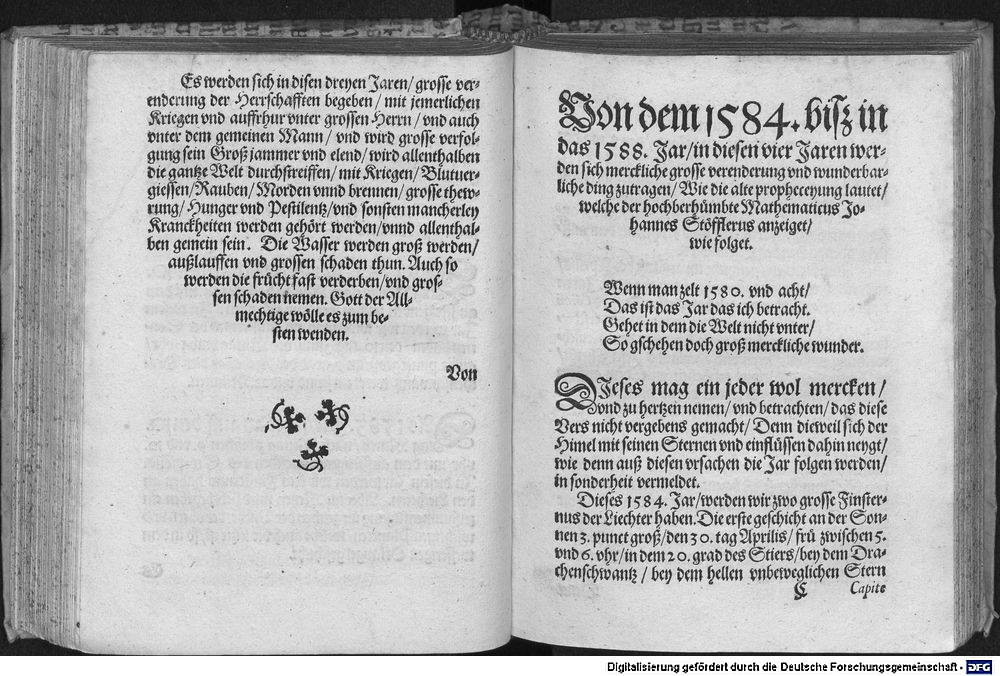 Es werden sich in disen dreyen Jaren/ grosse ver-
enderung der Herrschafften begeben/ mit jemerlichen
Kriegen vnd auffrhur vnter grossen Herrn/ vnd auch
vnter dem gemeinen Mann/ vnd wird grosse verfol-
gung sein Groß jammer vnd elend/ wird allenthalben
die gantze Welt durchstreiffen/ mit Kriegen/ Blutuer-
giessen/ Rauben/ Morden vnnd brennen/ grosse thew-
rung/ Hunger vnd Pestilentz/ vnd sonsten mancherley
Kranckheiten werden gehört werden/ vnnd allenthal-
ben gemein sein. Die Wasser werden groß werden/
außlauffen vnd grossen schaden thun. Auch so
werden die frücht fast verderben/ vnd gros-
sen schaden nemen. Gott der All-
mechtige wölle es zum be-
sten wenden.
Von
Von dem 1584. bisz in
das 1588. Jar/ in diesen vier Jaren wer-
den sich merckliche grosse verenderung vnd wunderbar-
liche ding zutragen/ Wie die alte propheceyung lautet/
welche der hochberhümbte Mathematicus Jo-
hannes Stöfflerus anzeiget/
wie folget.
Wenn man zelt 1580. vnd acht/
Das ist das Jar das ich betracht.
Gehet in dem die Welt nicht vnter/
So gschehen doch groß merckliche wunder.
DIeses mag ein jeder wol mercken/
vnd zu hertzen nemen/ vnd betrachten/ das diese
Vers nicht vergebens gemacht/ Denn dieweil sich der
Himel mit seinen Sternen vnd einflüssen dahin neygt/
wie denn auß diesen vrsachen die Jar folgen werden/
in sonderheit vermeldet.
Dieses 1584. Jar/ werden wir zwo grosse Finster-
nus der Liechter haben. Die erste geschicht an der Son-
nen 3. punct groß/ den 30. tag Aprilis/ frü zwischen 5.
vnd 6. vhr/ in dem 20. grad des Stiers/ bey dem Dra-
chenschwantz/ bey dem hellen vnbeweglichen Stern
C Capite
Digitalisierung gefördert durch die Deutsche Forschungsgemeinschaft - DFG